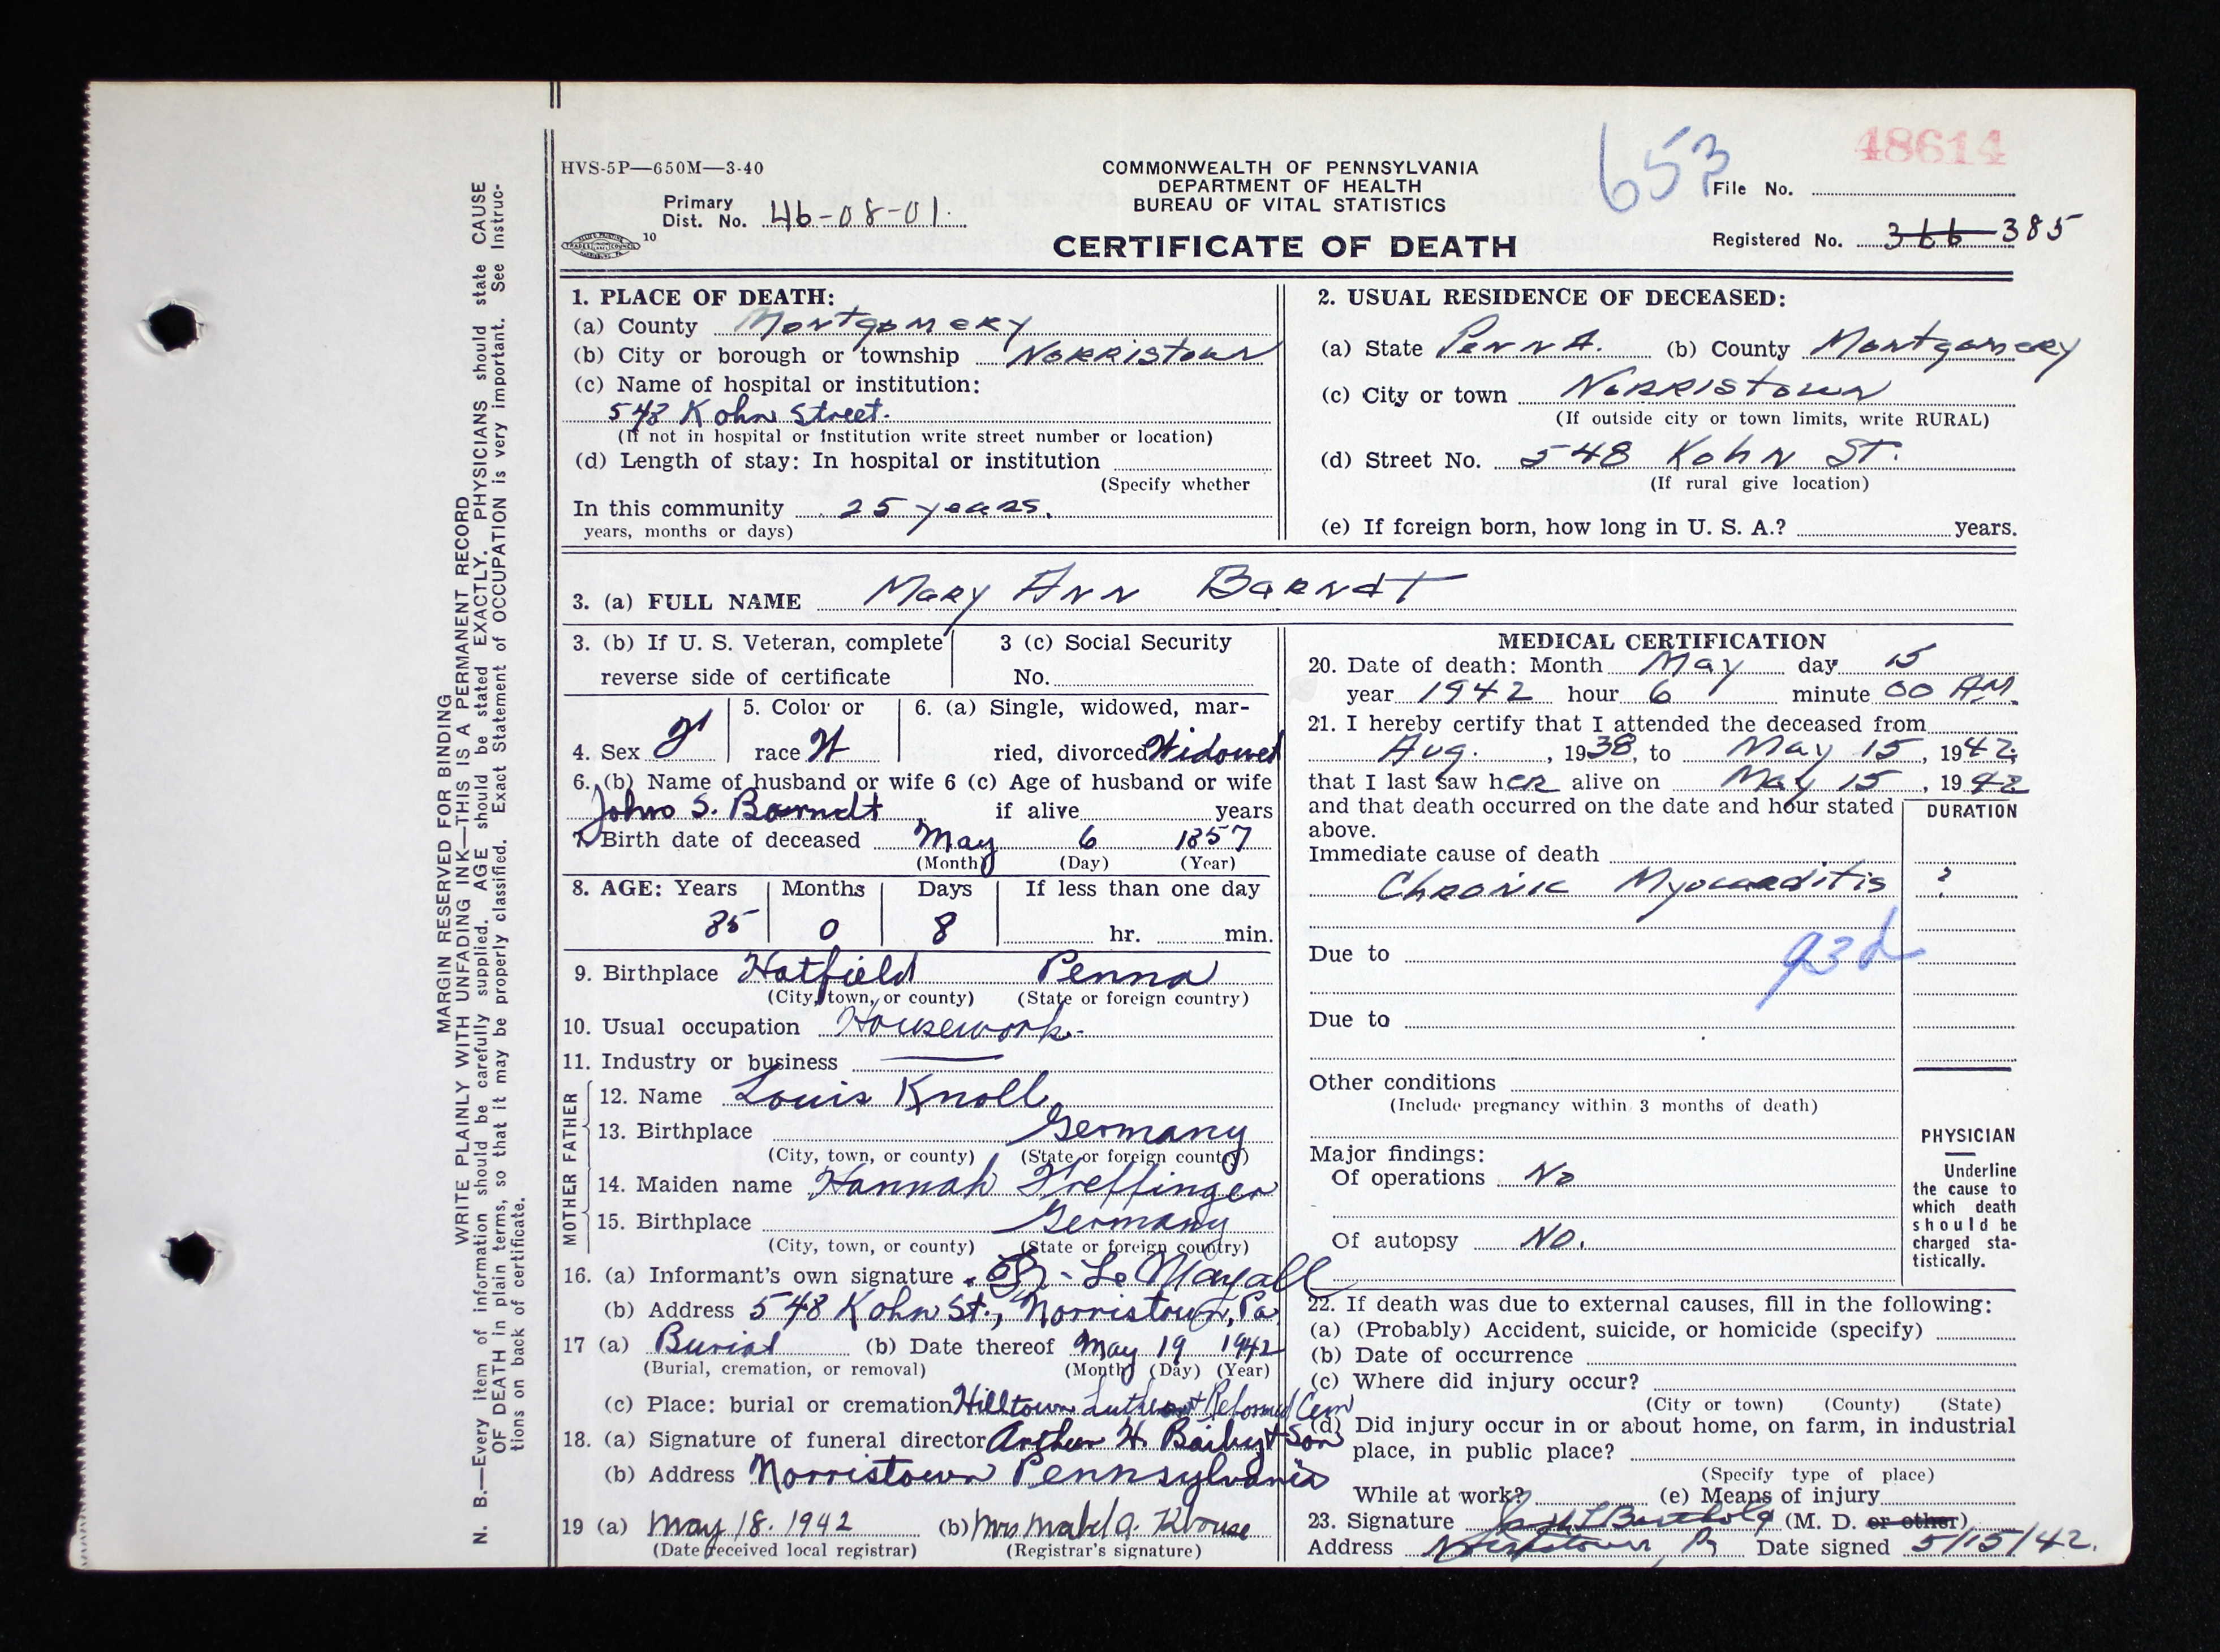 48614
653
HVS-5P—650M—3-40
COMMONWEALTH OF PENNSYLVANIA
DEPARTMENT OF HEALTH
BUREAU OF VITAL STATISTICS
CERTIFICATE OF DEATH
Primary
Dist. No. 46-08-01.
10
File No.
Registered No. 366 385
MARGIN RESERVED FOR BINDING
WRITE PLAINLY WITH UNFADING INK—THIS IS A PERMANENT RECORD
N. B.—Every item of information should be carefully supplied. AGE should be stated EXACTLY. PHYSICIANS should state CAUSE
OF DEATH in plain terms, so that it may be properly classified. Exact Statement of OCCUPATION is very important. See Instruc-
tions on back of certificate.
1. PLACE OF DEATH:
(a) County Montgomery
(b) City or borough or township Norristown
(c) Name of hospital or institution:
548 Kohn Street.
(If not in hospital or institution write street number or location)
(d) Length of stay: In hospital or institution
(Specify whether
In this community 25 years.
years, months or days)
2. USUAL RESIDENCE OF DECEASED:
(a) State Penna. (b) County Montgomery
(c) City or town Norristown
(If outside city or town limits, write RURAL)
(d) Street No. 548 Kohn St.
(If rural give location)
(e) If foreign born, how long in U. S. A.? years.
3. (a) FULL NAME Mary Ann Barndt
3. (b) If U. S. Veteran, complete
reverse side of certificate
3 (c) Social Security
No.
4. Sex
5. Color or
race W
6. (a) Single, widowed, mar-
ried, divorced Widowed
6. (b) Name of husband or wife 6 (c) Age of husband or wife
John S. Barndt if alive years
7. Birth date of deceased May 6 1857
(Month) (Day) (Year)
8. AGE: Years Months Days If less than one day
85 0 8 hr. min.
9. Birthplace Hatfield Penna
(City, town, or county) (State or foreign country)
10. Usual occupation Housework.
11. Industry or business
FATHER
12. Name Louis Knoll
13. Birthplace Germany
(City, town, or county) (State or foreign country)
MOTHER
14. Maiden name Hannah
15. Birthplace Germany
(City, town, or county) (State or foreign country)
16. (a) Informant's own signature Mayall
(b) Address 548 Kohn St., Norristown, Pa
17 (a) Burial (b) Date thereof May 19 1942
(Burial, cremation, or removal) (Month) (Day) (Year)
(c) Place: burial or cremation Hilltown Luth. + Reformed Cem
18. (a) Signature of funeral director Arthur H. + Son
(b) Address Norristown Pennsylvania
19 (a) May 18. 1942 (b) Mrs Mabel A.
(Date received local registrar) (Registrar's signature)
MEDICAL CERTIFICATION
20. Date of death: Month May day 15
year 1942 hour 6 minute 00 AM.
21. I hereby certify that I attended the deceased from
Aug. , 1938, to May 15, 1942
that I last saw her alive on May 15, 1942
and that death occurred on the date and hour stated
above.
DURATION
Immediate cause of death
Chronic Myocarditis ?
Due to
93d
Due to
Other conditions
(Include pregnancy within 3 months of death)
Major findings:
Of operations No
Of autopsy No.
PHYSICIAN
Underline
the cause to
which death
should be
charged sta-
tistically.
22. If death was due to external causes, fill in the following:
(a) (Probably) Accident, suicide, or homicide (specify)
(b) Date of occurrence
(c) Where did injury occur?
(City or town) (County) (State)
(d) Did injury occur in or about home, on farm, in industrial
place, in public place?
(Specify type of place)
While at work? (e) Means of injury
23. Signature (M. D. or other)
Address Norristown, Pa Date signed 5/15/42.